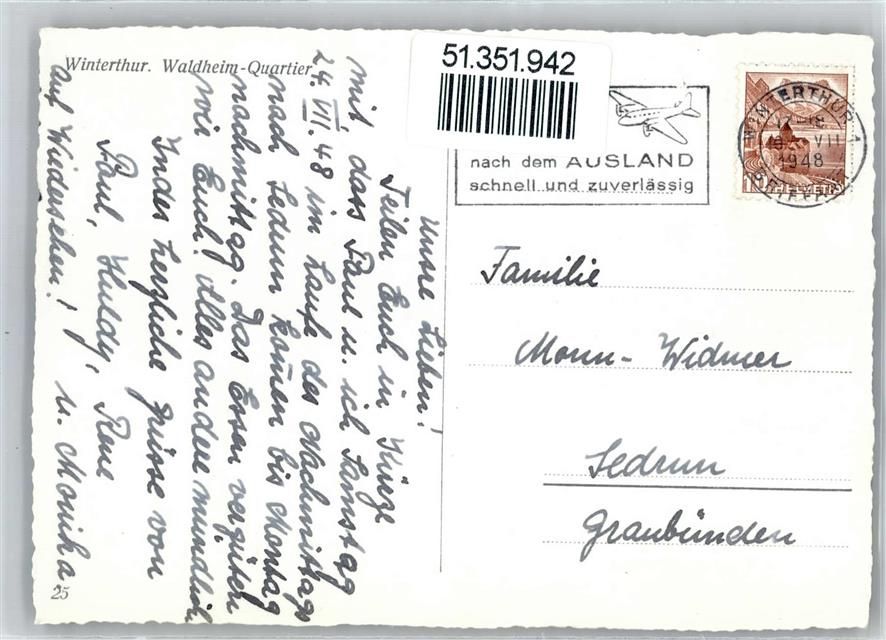 Winterthur. Waldheim-Quartier
51.351.942
nach dem AUSLAND
schnell und zuverlässig
WINTERTHUR 1
VII
1948
HELVETIA
Unsre Lieben!
Teilen Euch in Kürze
mit, dass Paul u. ich Samstag
24. VII. 48 im Laufe des Nachmittags
nach Sedrun komen bis Montag
nachmittag. Das Essen vergüten
wir Euch! Alles andere mündlich
Indes herzliche Grüsse von
Paul, Huldy, Rene
u. Monika
auf Wiedersehen!
Familie
Monn-Widmer
Sedrun
Graubünden
25